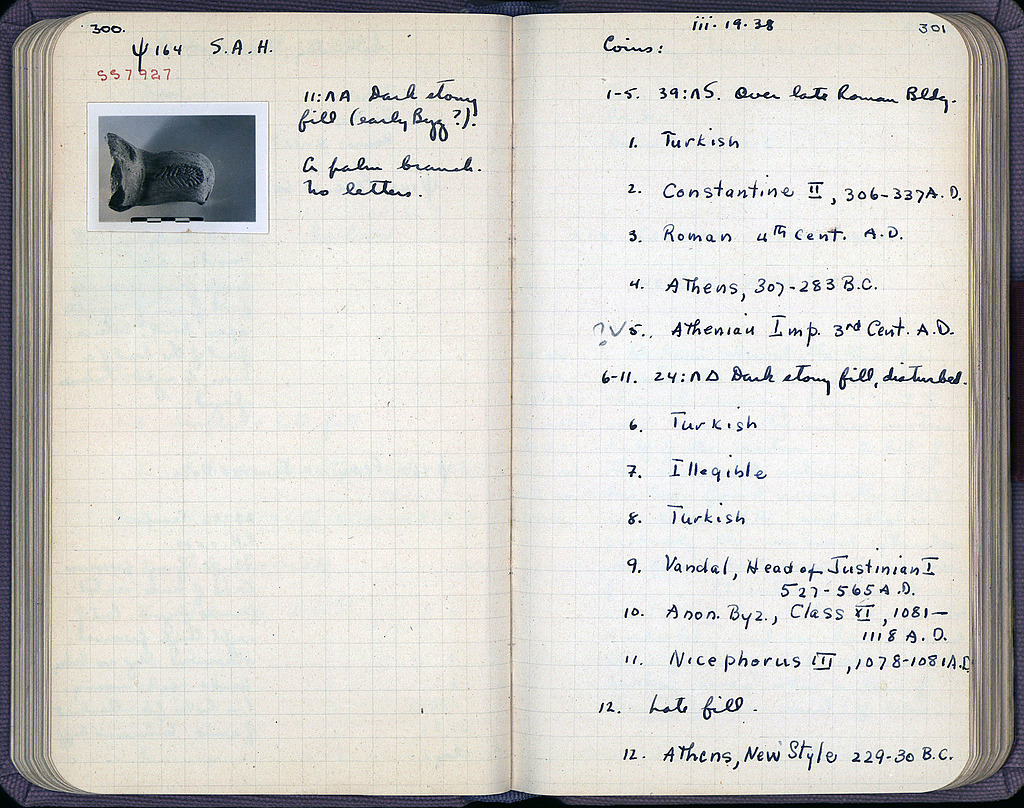 300.
Ψ 164 S.A.H.
SS7927
11:ΛΑ Dark stony
fill (early Byz?).
A palm branch.
No letters.
iii-19-38
301
Coins:
1-5. 39:ΛS. Over late Roman Bldg.
1. Turkish
2. Constantine II, 306-337 A.D.
3. Roman 4th Cent. A.D.
4. Athens, 307-283 B.C.
?✓ 5. Athenian Imp. 3rd Cent. A.D.
6-11. 24:ΛΔ Dark stony fill, disturbed.
6. Turkish
7. Illegible
8. Turkish
9. Vandal, Head of Justinian I
527-565 A.D.
10. Anon. Byz., Class XI, 1081-
1118 A.D.
11. Nicephorus III, 1078-1081 A.D.
12. Late fill.
12. Athens, New Style 229-30 B.C.